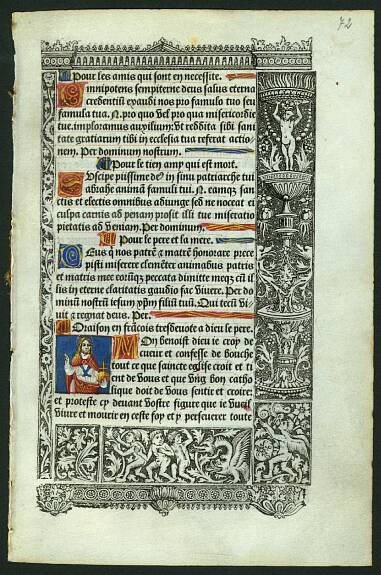 72
Pour les amis qui sont en necessite.
Omnipotens sempiterne deus salus eterna
credentiũ exaudi nos pro famulo tuo seu
famula tua. N. pro quo vel pro qua misericordie
tue imploramus auxilium: vt reddita sibi sani
tate gratiarum tibi in ecclesia tua referat actio
nem. Per dominum nostrum.
Pour le tien amy qui est mort.
Suscipe piissime de9 in sinu patriarche tui
abrahe animã famuli tui. N. eamq3 san
ctis et electis omnibus adiunge sed ne noceat ei
culpa carnis ad penam prosit illi tue miseratio
pietatis ad veniam. Per dominum.
Pour le pere et la mere.
Deus q nos patrẽ & matrẽ honorare prece
pisti miserere clemẽter animabus patris
et matris mee eorũq3 peccata dimitte meq3 cũ il
lis in eterne claritatis gaudio fac viuere. Per do
minũ nostrũ iesum xpm filiũ tuũ. Qui tecũ vi
uit & regnat deus. Per.
Oraison en frãcois tresdeuote a dieu le pere.
Mon benoist dieu ie croy de
cueur et confesse de bouche
tout ce que saincte eglise croit et ti
ent de vous et que vng bon catho
lique doit de vous sentir et croire:
et proteste cy deuant vostre figure que ie vueil
viure et mourir en ceste foy et y perseuerer toute